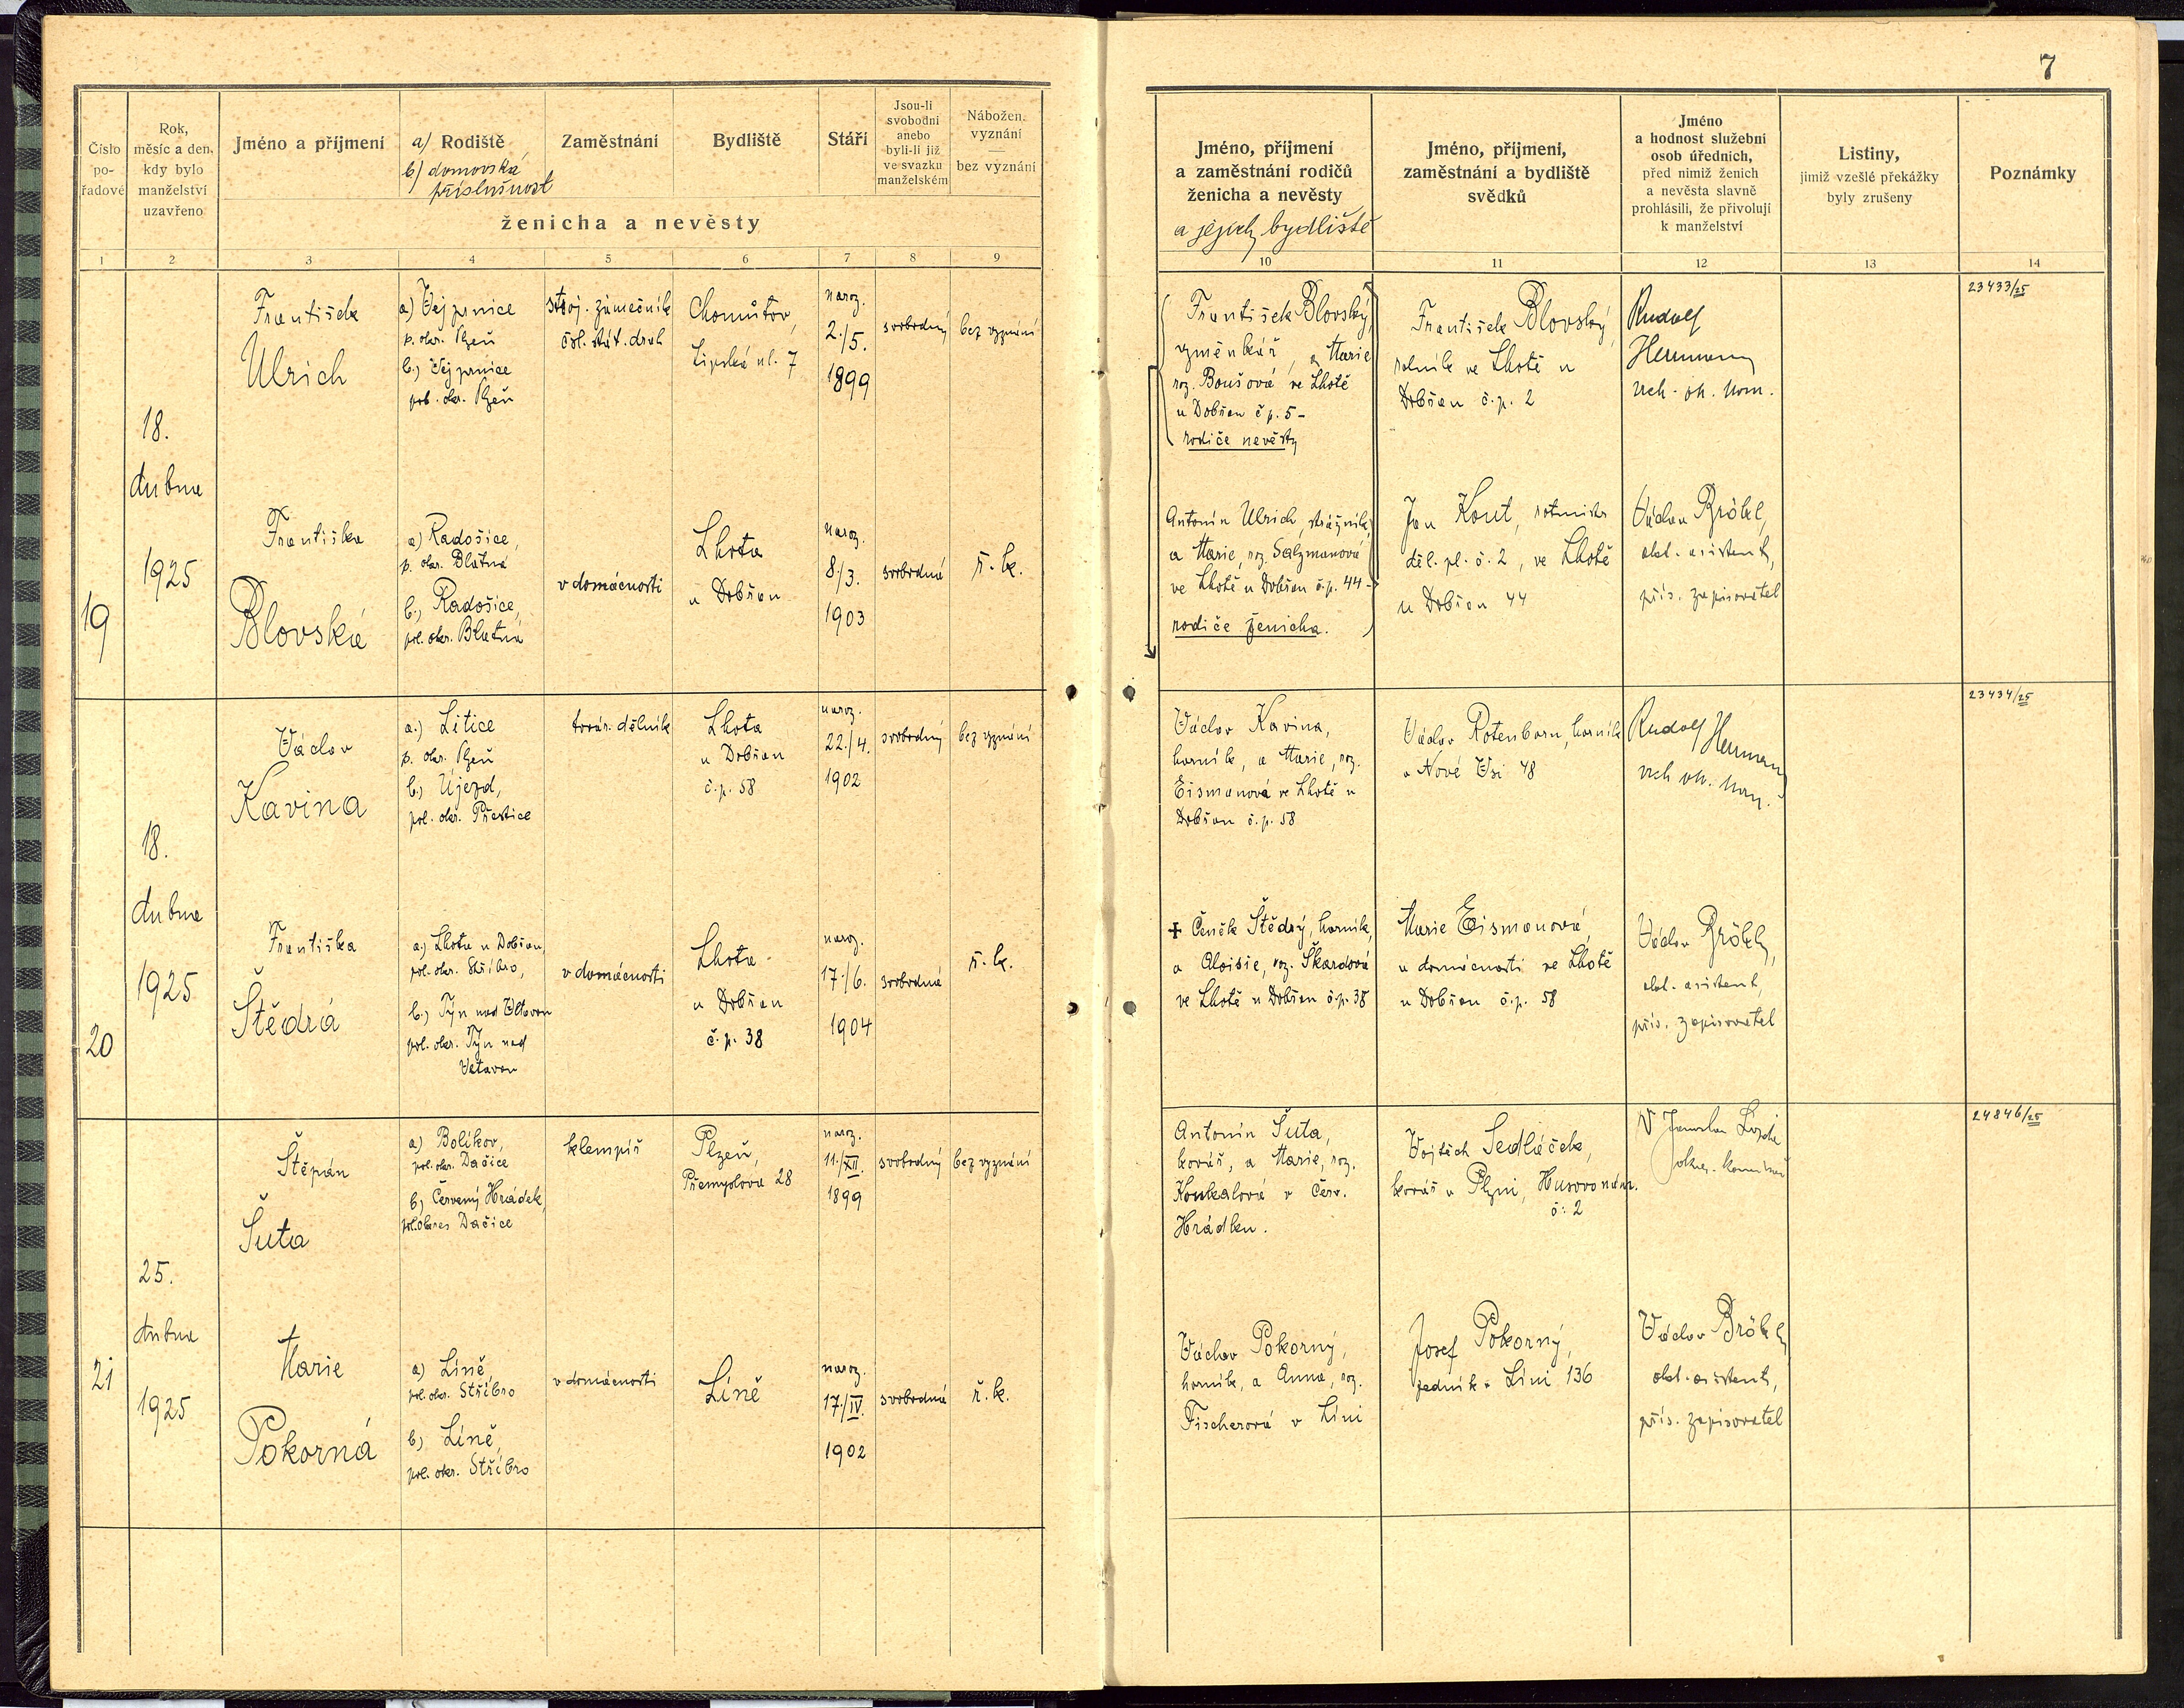 7
Číslo pořadové
Rok, měsíc a den, kdy bylo manželství uzavřeno
Jméno a příjmení
a) Rodiště
b) domovská příslušnost
Zaměstnání
Bydliště
Stáří
Jsou-li svobodni anebo byli-li již ve svazku manželském
Nábožen. vyznání — bez vyznání
ženicha a nevěsty
Jméno, příjmení a zaměstnání rodičů ženicha a nevěsty
a jejich bydliště
Jméno, příjmení, zaměstnání a bydliště svědků
Jméno a hodnost služební osob úředních, před nimiž ženich a nevěsta slavně prohlásili, že přivolují k manželství
Listiny, jimiž vzešlé překážky byly zrušeny
Poznámky
1 2 3 4 5 6 7 8 9 10 11 12 13 14
19
18.
dubna
1925
František
Ulrich
a) Vejprnice
p. okr. Plzeň
b.) Vejprnice
pol. okr. Plzeň
stroj. zámečník
čsl. stát. drah
Chomutov,
Lipská ul. 7
naroz.
2./5.
1899
svobodný
bez vyznání
Františka
Blovská
a) Radošice,
p. okr. Blatná
b.) Radošice,
pol. okr. Blatná
v domácnosti
Lhota
u Dobřan
naroz.
8./3.
1903
svobodná
ř. k.
František Blovský,
výměnkář, a Marie
roz. Boušová ve Lhotě
u Dobřan č p. 5 -
rodiče nevěsty
Antonín Ulrich, strážník,
a Marie, roz. Salzmanová
ve Lhotě u Dobřan č.p. 44 -
rodiče ženicha.
František Blovský,
rolník ve Lhotě u
Dobřan č.p. 2
Jan Kout, rotmistr
děl. pl. č. 2, ve Lhotě
u Dobřan 44
Rudolf
Hermann
vrch. ok. kom.
Václav Bröckl,
okl. asistent,
přís. zapisovatel
23433/25
20
18.
dubna
1925
Václav
Kavina
a.) Litice
p. okr. Plzeň
b.) Újezd,
pol. okr. Přeštice
továr. dělník
Lhota
u Dobřan
č.p. 58
naroz.
22./4.
1902
svobodný
bez vyznání
Františka
Štědrá
a.) Lhota u Dobřan,
pol. okr. Stříbro,
b.) Týn nad Vltavou
pol. okr. Týn nad
Vltavou
v domácnosti
Lhota
u Dobřan
č. p. 38
naroz.
17./6.
1904
svobodná
ř. k.
Václav Kavina,
horník, a Marie, roz.
Eismanová ve Lhotě u
Dobřan č.p. 58
+ Čeněk Štědrý, horník,
a Aloisie, roz. Škardová
ve Lhotě u Dobřan č.p. 38
Václav Rotenborn, horník
v Nové Vsi 48
Marie Eismanová,
v domácnosti ve Lhotě
u Dobřan č.p. 58
Rudolf Hermann
vrch ok. kom.
Václav
okl. asistent,
přís. zapisovatel
23434/25
21
25.
dubna
1925
Štěpán
Šuta
a) Bolíkov,
pol. okr. Dačice
b) Červený Hrádek,
pol. okres Dačice
klempíř
Plzeň,
Přemyslova 28
naroz.
11./XII.
1899
svobodný
bez vyznání
Marie
Pokorná
a) Líně,
pol. okr. Stříbro
b) Líně,
pol. okr. Stříbro
v domácnosti
Líně
naroz.
17./IV.
1902
svobodná
ř. k.
Antonín Šuta,
kovář, a Marie, roz.
Koukalová v Červ.
Hrádku.
Václav Pokorný,
horník, a Anna, roz.
Fischerová v Líni
Vojtěch Sedláček,
kovář v Plzni, Husovo nám.
č. 2
Josef Pokorný,
zedník v Líni 136
Václav
okl. asistent,
přís. zapisovatel
24846/25